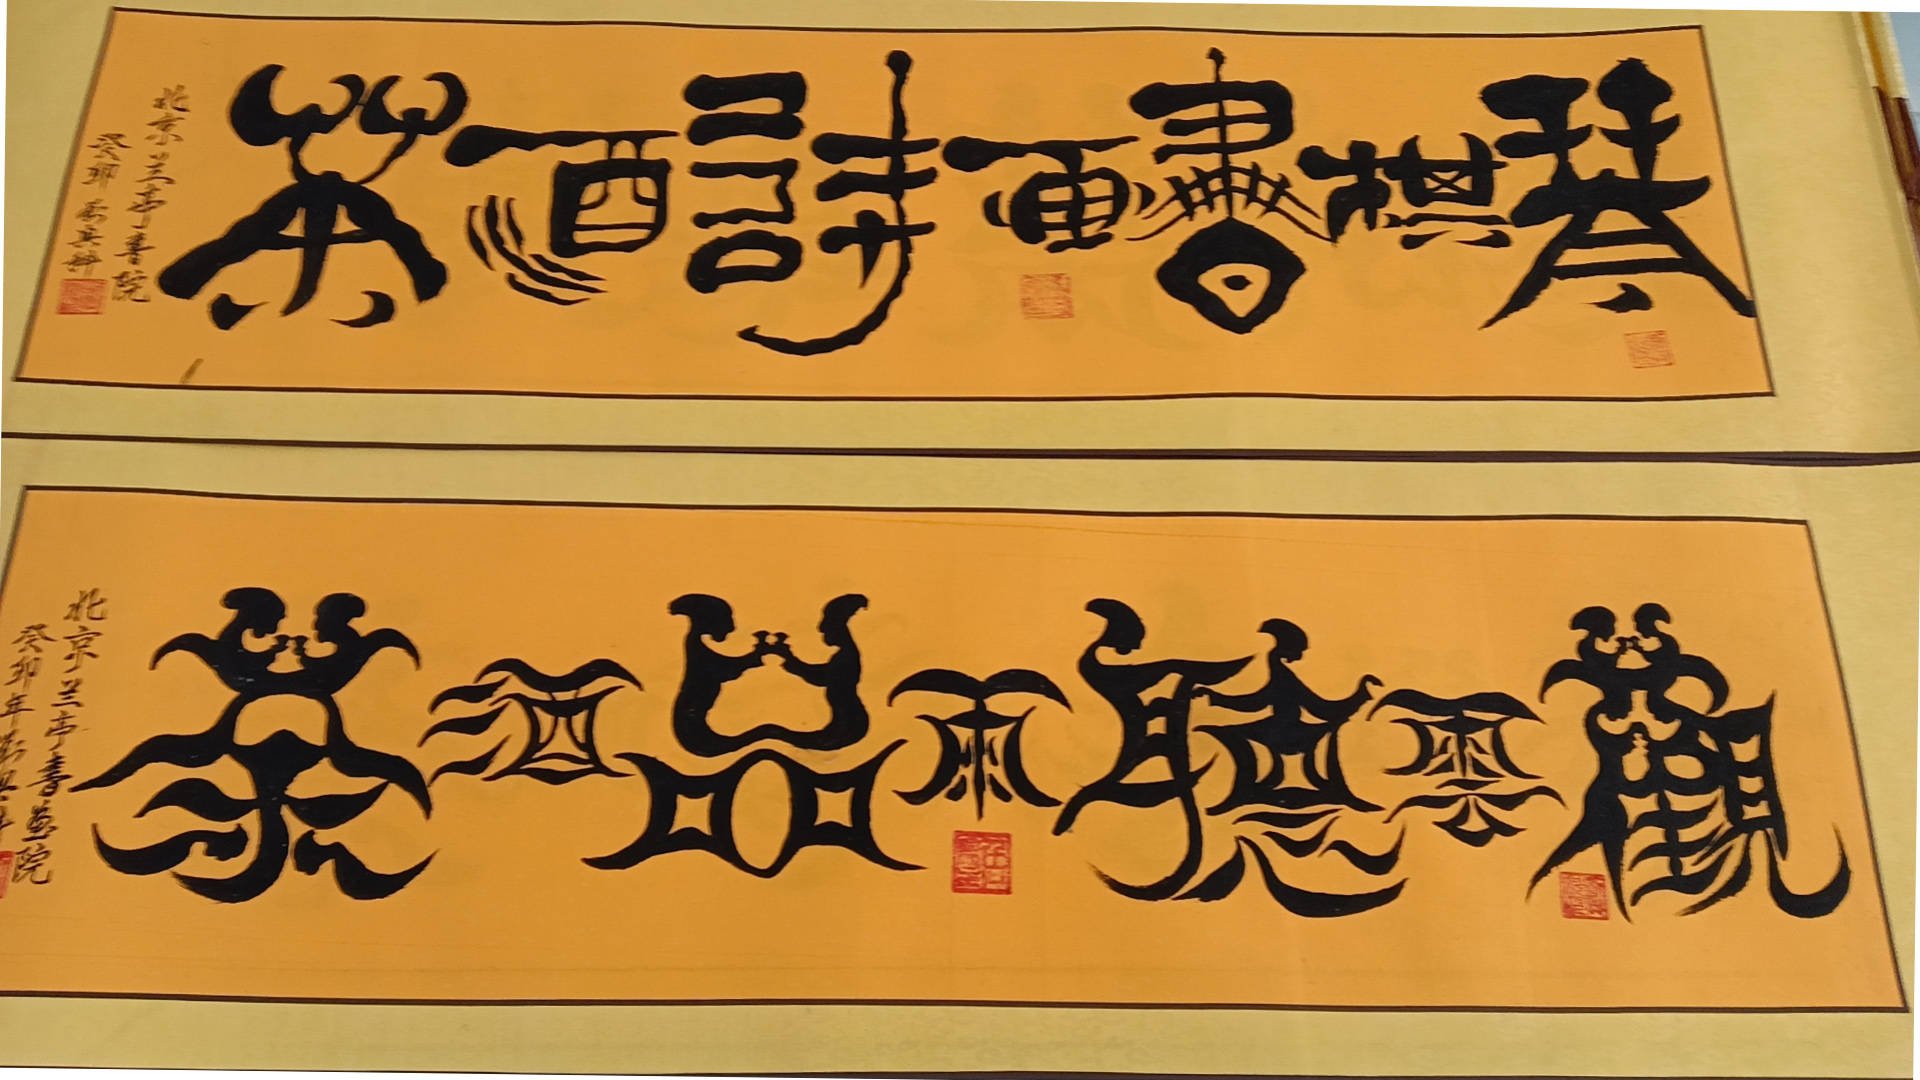 琴棋書畫詩酒茶
北京兰亭書院
癸卯
觀雲聽雨品酒茶
北京兰亭書画院
癸卯年